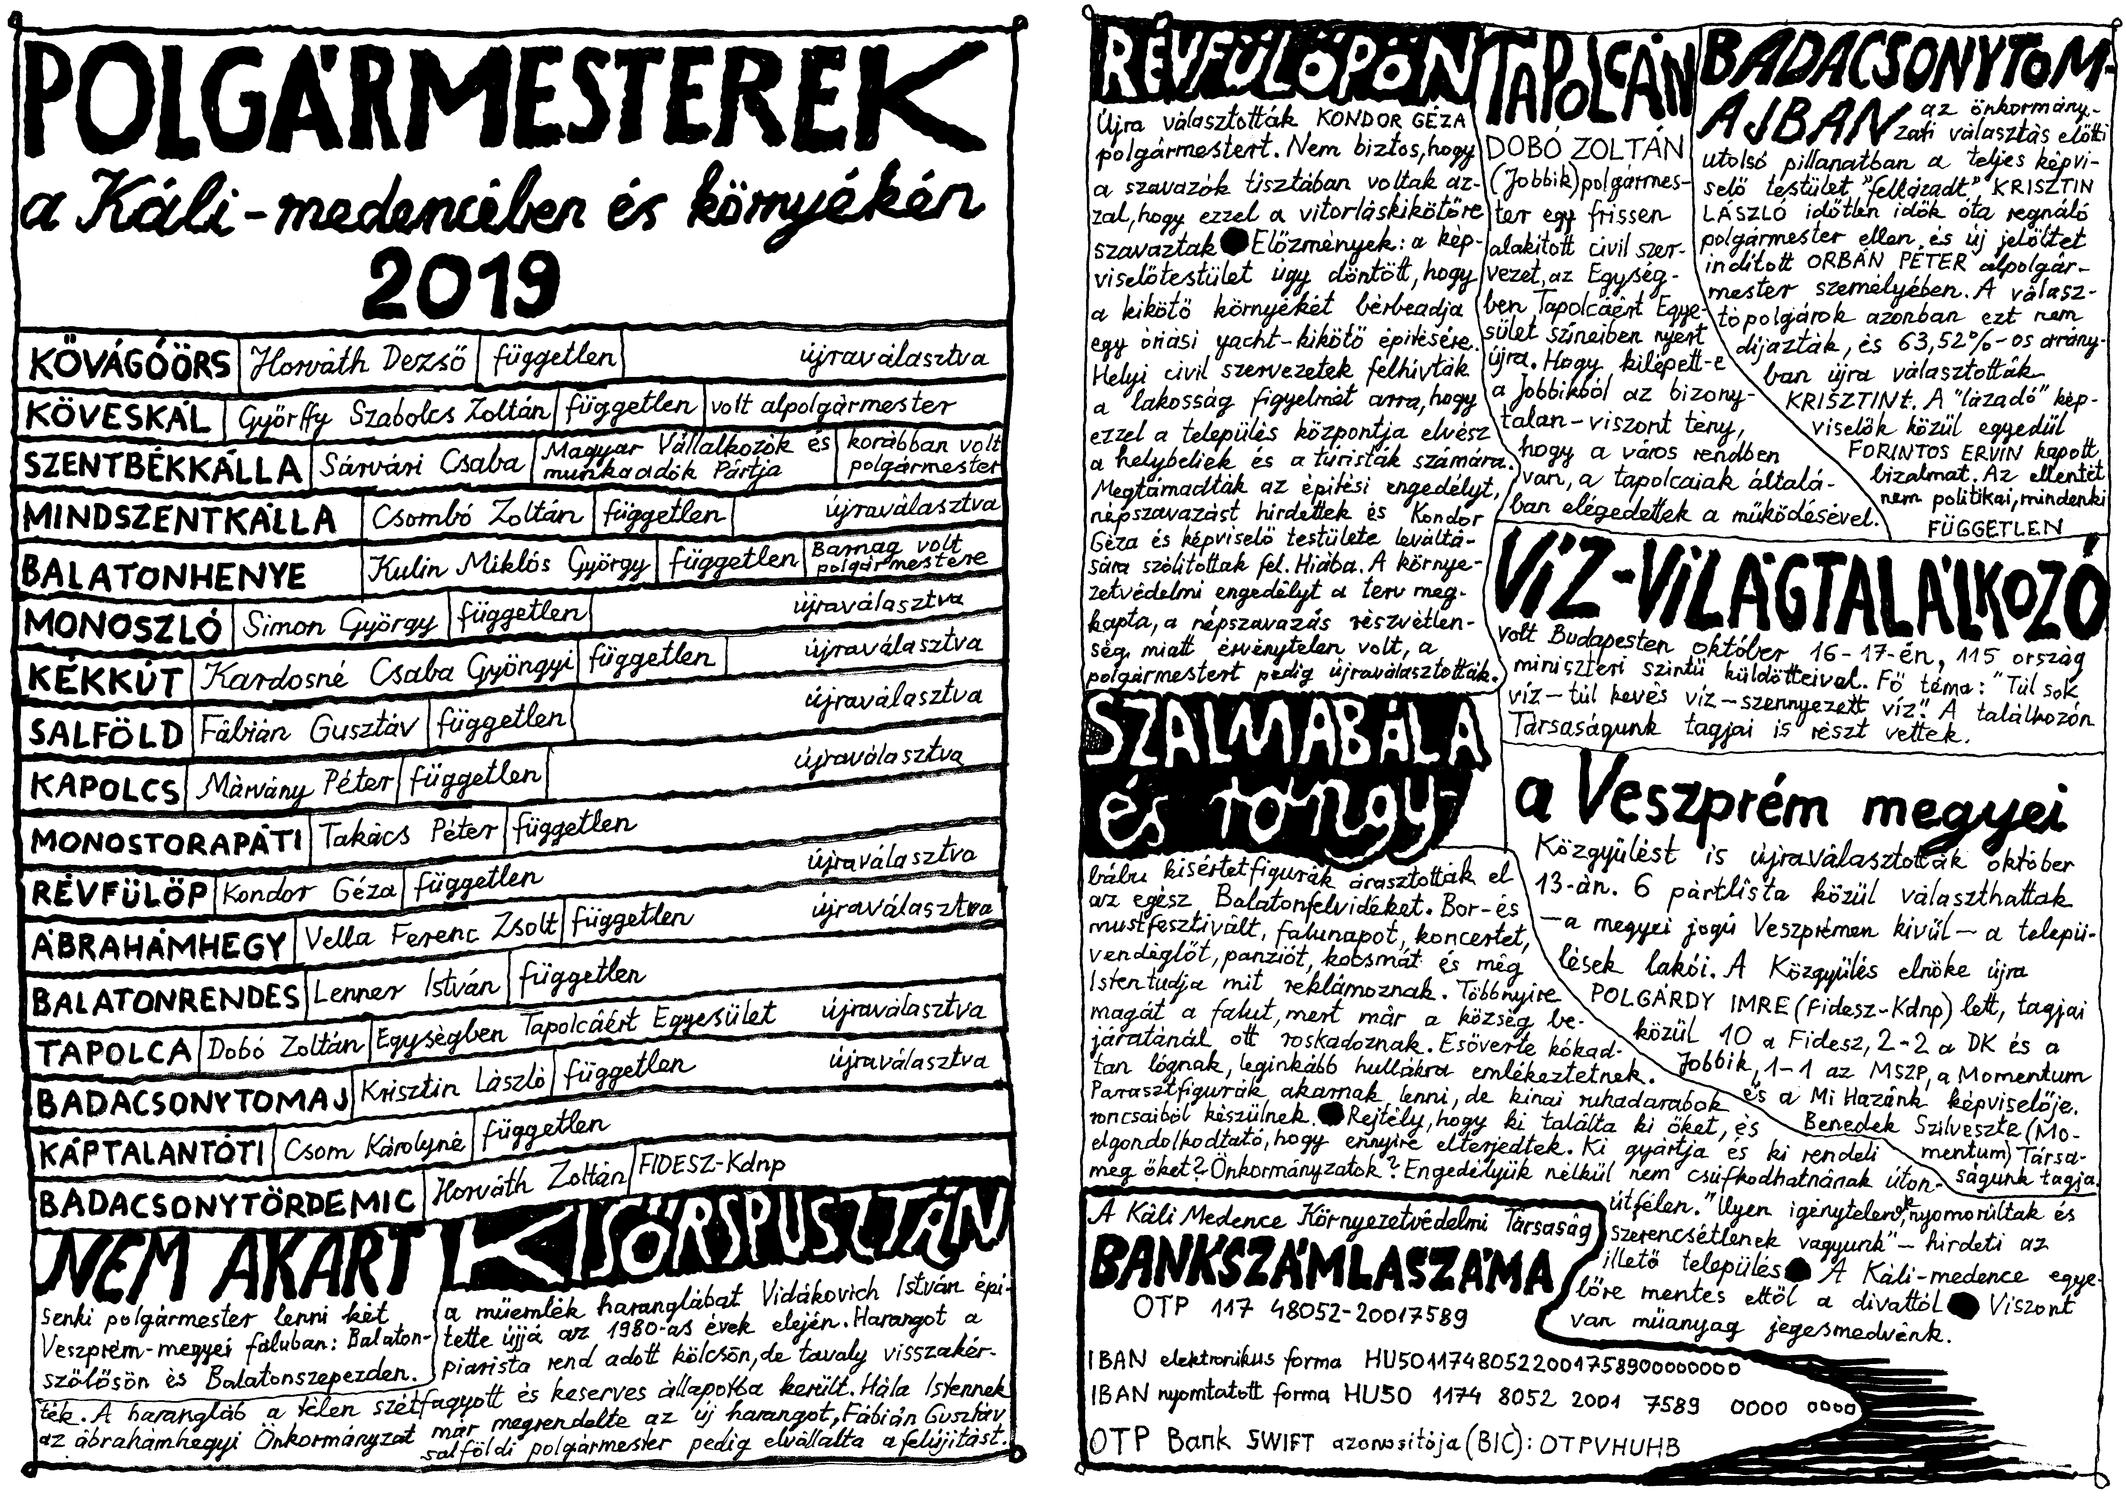 POLGÁRMESTEREK
a Káli-medencében és környékén
2019
KŐVÁGÓÖRS Horváth Dezső független újraválasztva
KÖVESKÁL Győrffy Szabolcs Zoltán független volt alpolgármester
SZENTBÉKKÁLLA Sárvári Csaba Magyar Vállalkozók és munkaadók Pártja korábban volt polgármester
MINDSZENTKÁLLA Csombó Zoltán független újraválasztva
BALATONHENYE Kulin Miklós György független Barnag volt polgármestere
MONOSZLÓ Simon György független újraválasztva
KÉKKÚT Kardosné Csaba Gyöngyi független újraválasztva
SALFÖLD Fábián Gusztáv független újraválasztva
KAPOLCS Márvány Péter független újraválasztva
MONOSTORAPÁTI Takács Péter független
RÉVFÜLÖP Kondor Géza független újraválasztva
ÁBRAHÁMHEGY Vella Ferenc Zsolt független újraválasztva
BALATONRENDES Lenner István független
TAPOLCA Dobó Zoltán Egységben Tapolcáért Egyesület újraválasztva
BADACSONYTOMAJ Krisztin László független újraválasztva
KÁPTALANTÓTI Csom Károlyné független
BADACSONYTÖRDEMIC Horváth Zoltán FIDESZ-Kdnp
NEM AKART
senki polgármester lenni két
Veszprém-megyei faluban: Balaton-
szőlősön és Balatonszepezden.
KISÖRSPUSZTÁN
a műemlék haranglábat Vidákovich István épí-
tette újjá az 1980-as évek elején. Harangot a
piarista rend adott kölcsön, de tavaly visszakér-
ték. A harangláb a télen szétfagyott és keserves állapotba került. Hála Istennek
az ábrahámhegyi Önkormányzat már megrendelte az új harangot, Fábián Gusztáv
salföldi polgármester pedig elvállalta a felújítást.
RÉVFÜLÖPÖN
Újra választották KONDOR GÉZA
polgármestert. Nem biztos, hogy
a szavazók tisztában voltak az-
zal, hogy ezzel a vitorláskikötőre
szavaztak Előzmények: a kép-
viselőtestület úgy döntött, hogy
a kikötő környékét bérbeadja
egy óriási yacht-kikötő építésére.
Helyi civil szervezetek felhívták
a lakosság figyelmét arra, hogy
ezzel a település központja elvész
a helybeliek és a turisták számára.
Megtámadták az építési engedélyt,
népszavazást hirdettek és Kondor
Géza és képviselő testülete leváltá-
sára szólítottak fel. Hiába. A környe-
zetvédelmi engedélyt a terv meg-
kapta, a népszavazás részvétlen-
ség miatt érvénytelen volt, a
polgármestert pedig újraválasztották.
TAPOLCÁN
DOBÓ ZOLTÁN
(Jobbik) polgármes-
ter egy frissen
alakított civil szer-
vezet, az Egység-
ben Tapolcáért Egye-
sület színeiben nyert
újra. Hogy kilépett-e
a Jobbikból az bizony-
talan-viszont tény,
hogy a város rendben
van, a tapolcaiak általá-
ban elégedettek a működésével.
BADACSONYTOM-
AJBAN az önkormány-
zati választás előtti
utolsó pillanatban a teljes képvi-
selő testület "fellázadt" KRISZTIN
LÁSZLÓ időtlen idők óta regnáló
polgármester ellen, és új jelöltet
indított ORBÁN PÉTER alpolgár-
mester személyében. A válasz-
tópolgárok azonban ezt nem
díjazták, és 63,52%-os arány-
ban újra választották
KRISZTINt. A "lázadó" kép-
viselők közül egyedül
FORINTOS ERVIN kapott
bizalmat. Az ellentét
nem politikai, mindenki
FÜGGETLEN
VÍZ-VILÁGTALÁLKOZÓ
volt Budapesten október 16-17-én, 115 ország
miniszteri szintű küldötteivel. Fő téma: "Túl sok
víz - túl kevés víz - szennyezett víz." A találkozón
Társaságunk tagjai is részt vettek.
a Veszprém megyei
Közgyűlést is újraválasztották október
13-án. 6 pártlista közül választhattak
- a megyei jogú Veszprémen kívül - a telepü-
lések lakói. A Közgyűlés elnöke újra
POLGÁRDY IMRE (Fidesz-Kdnp) lett, tagjai
közül 10 a Fidesz, 2-2 a DK és a
Jobbik, 1-1 az MSZP, a Momentum
és a Mi Hazánk képviselője.
Benedek Szilveszte (Mo-
mentum) Társa-
ságunk tagja.
SZALMABÁLA
és rongy
bábu kísértetfigurák árasztották el
az egész Balatonfelvidéket. Bor- és
mustfesztivált, falunapot, koncertet,
vendéglőt, panziót, kocsmát és még
Istentudja mit reklámoznak. Többnyire
magát a falut, mert már a község be-
járatánál ott roskadoznak. Esőverte kókad-
tan lógnak, leginkább hullákra emlékeztetnek.
Parasztfigurák akarnak lenni, de kínai ruhadarabok
roncsaiból készülnek. Rejtély, hogy ki találta ki őket, és
elgondolkodtató, hogy ennyire elterjedtek. Ki gyártja és ki rendeli
meg őket? Önkormányzatok? Engedélyük nélkül nem csúfkodhatnának úton-
útfélen. "Ilyen igénytelenek, nyomorúltak és
szerencsétlenek vagyunk" - hirdeti az
illető település A Káli-medence egye-
lőre mentes ettől a divattól Viszont
van műanyag jegesmedvénk.
A Káli Medence Környezetvédelmi Társaság
BANKSZÁMLASZÁMA
OTP 117 48052-20017589
IBAN elektronikus forma HU50117480522001758900000000
IBAN nyomtatott forma HU50 1174 8052 2001 7589 0000 0000
OTP Bank SWIFT azonosítója (BIC): OTPVHUHB